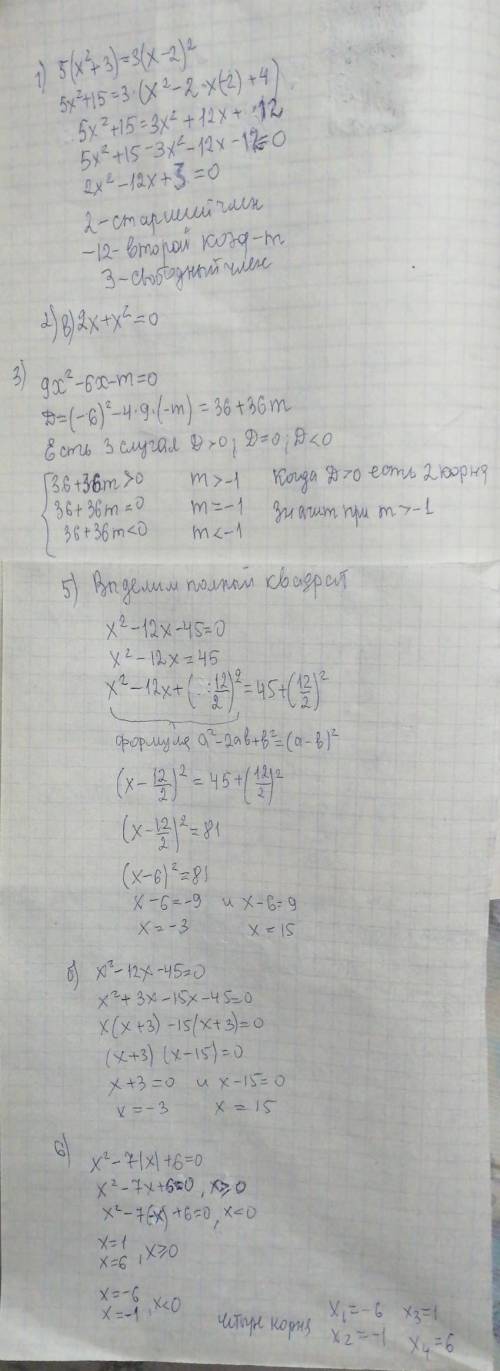 1) 5(x²+3)=3(x-2)²
5x²+15=3·(x²-2·x(-2)+4)
5x²+15=3x²+12x+12
5x²+15-3x²-12x-12=0
2x²-12x+3=0
2-старший член
-12-второй коэф-т
3-свободный член
2) в) 2x+x²=0
3) 9x²-6x-m=0
D=(-6)²-4·9·(-m)=36+36m
Есть 3 случая D>0; D=0; D<0
36+36m>0 m>-1 Когда D>0 есть 2 корня
36+36m=0 m=-1 Значит при m>-1
36+36m<0 m<-1
5) Выделим полный квадрат
x²-12x-45=0
x²-12x=45
x²-12x+(12/2)²=45+(12/2)²
формула a²-2ab+b²=(a-b)²
(x-12/2)²=45+(12/2)²
(x-12/2)²=81
(x-6)²=81
x-6=-9 и x-6=9
x=-3 x=15
б) x²-12x-45=0
x²+3x-15x-45=0
x(x+3)-15(x+3)=0
(x+3)(x-15)=0
x+3=0 и x-15=0
x=-3 x=15
6) x²-7|x|+6=0
x²-7x+6=0, x≥0
x²-7(-x)+6=0, x<0
x=1
x=6, x≥0
x=-6
x=-1, x<0
Четыре корня x₁=-6 x₃=1
x₂=-1 x₄=6